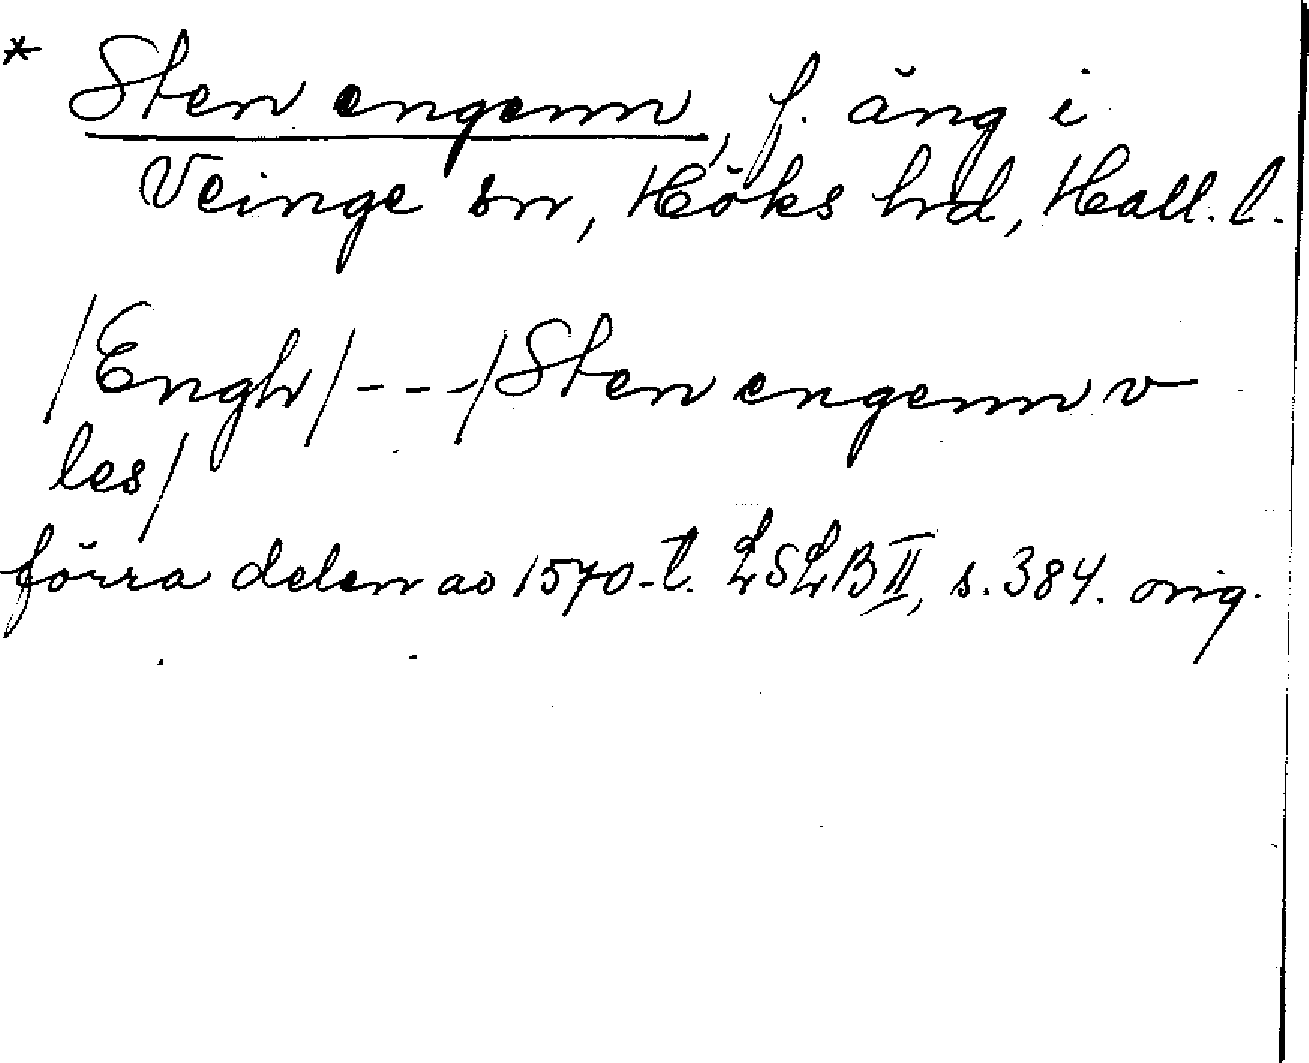 * Sten engenn, f. äng i
Veinge sn, Höks hrd, Hall. l.
/Engh/---/Sten engenn v
les/
förra delen av 1570-t. LSLB II, s. 384. orig.